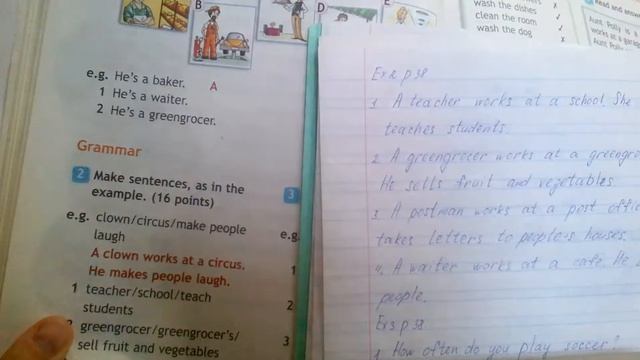 B
D
E
wash the dishes x
clean the room ✓
wash the dog x
Read and
Aunt Polly is a
works at a
Aunt Polly
e.g. He's a baker. A
1 He's a waiter.
2 He's a greengrocer.
Grammar
2 Make sentences, as in the
example. (16 points)
e.g. clown/circus/make people
laugh
A clown works at a circus.
He makes people laugh.
1 teacher/school/teach
students
greengrocer/greengrocer's/
sell fruit and vegetables
3
e.g.
1
2
3
Ex 2 p 38
1. A teacher works at a school. She
teaches students.
2. A greengrocer works at a greengro
He sells fruit and vegetables.
3. A postman works at a post offic
takes letters to people-s houses.
4. A waiter works at a cafe. He
people.
Ex 3 p 38
1 How often do you play soccer?